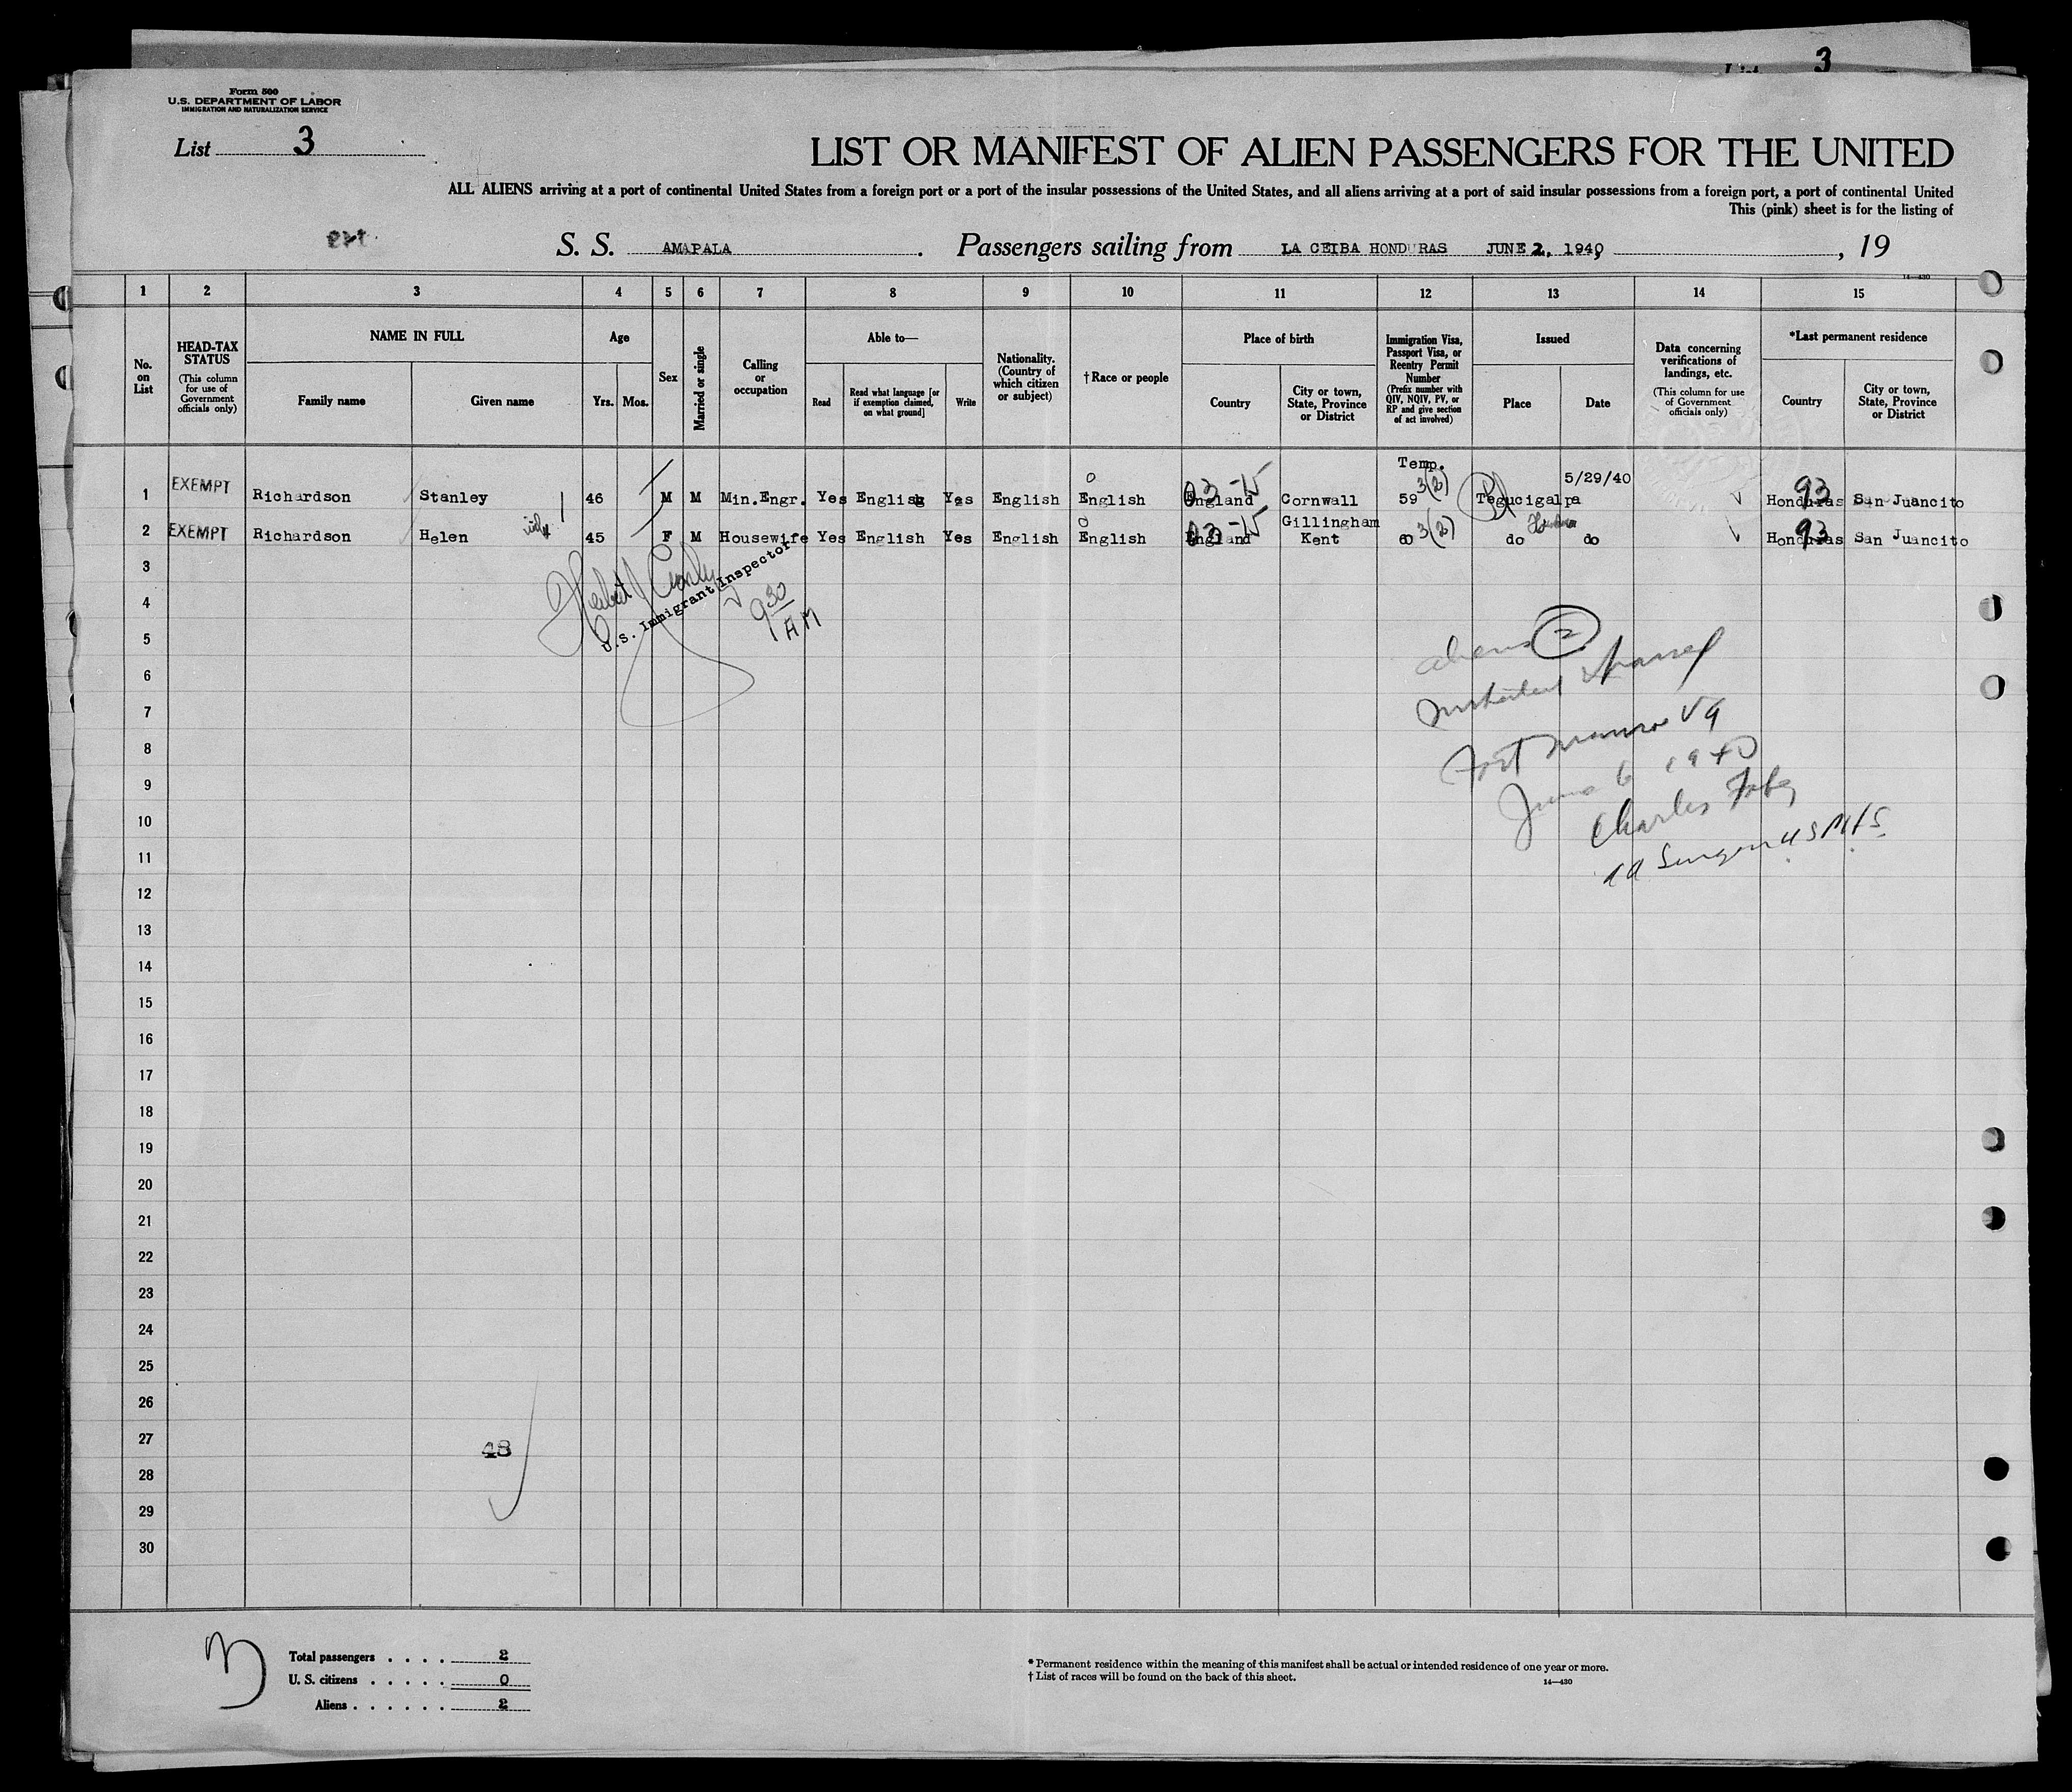 List 3
Form 500
U.S. DEPARTMENT OF LABOR
IMMIGRATION AND NATURALIZATION SERVICE
List 3
LIST OR MANIFEST OF ALIEN PASSENGERS FOR THE UNITED
ALL ALIENS arriving at a port of continental United States from a foreign port or a port of the insular possessions of the United States, and all aliens arriving at a port of said insular possessions from a foreign port, a port of continental United
This (pink) sheet is for the listing of
S. S. AMAPALA. Passengers sailing from LA CEIBA HONDURAS JUNE 2, 1940, , 19
14—430
1 2 3 4 5 6 7 8 9 10 11 12 13 14 15
No. on List
HEAD-TAX STATUS
(This column for use of Government officials only)
NAME IN FULL
Family name Given name
Age
Yrs. Mos.
Sex
Married or single
Calling or occupation
Able to—
Read
Read what language [or if exemption claimed, on what ground]
Write
Nationality. (Country of which citizen or subject)
†Race or people
Place of birth
Country
City or town, State, Province or District
Immigration Visa, Passport Visa, or Reentry Permit Number
(Prefix number with QIV, NQIV, PV, or RP and give section of act involved)
Issued
Place Date
Data concerning verifications of landings, etc.
(This column for use of Government officials only)
*Last permanent residence
Country
City or town, State, Province or District
Temp.
5/29/40
1 EXEMPT Richardson Stanley 46 M M Min.Engr. Yes English Yes English English England 03 Cornwall 59 3(2) Tegucigalpa Honduras 93 San Juancito
2 EXEMPT Richardson Helen wife 45 F M Housewife Yes English Yes English English England 03 Gillingham Kent 60 3(2) do do Honduras 93 San Juancito
3
U.S. Immigrant Inspector
9 30 AM
4
5
aliens 2
6
7
Fort Monroe Va
8
June 6 1940
9
Charles
10
USPHS
11
12
13
14
15
16
17
18
19
20
21
22
23
24
25
26
27
48
28
29
30
Total passengers . . . . 2
U. S. citizens . . . . . 0
Aliens . . . . . . 2
3
* Permanent residence within the meaning of this manifest shall be actual or intended residence of one year or more.
† List of races will be found on the back of this sheet.
14—430